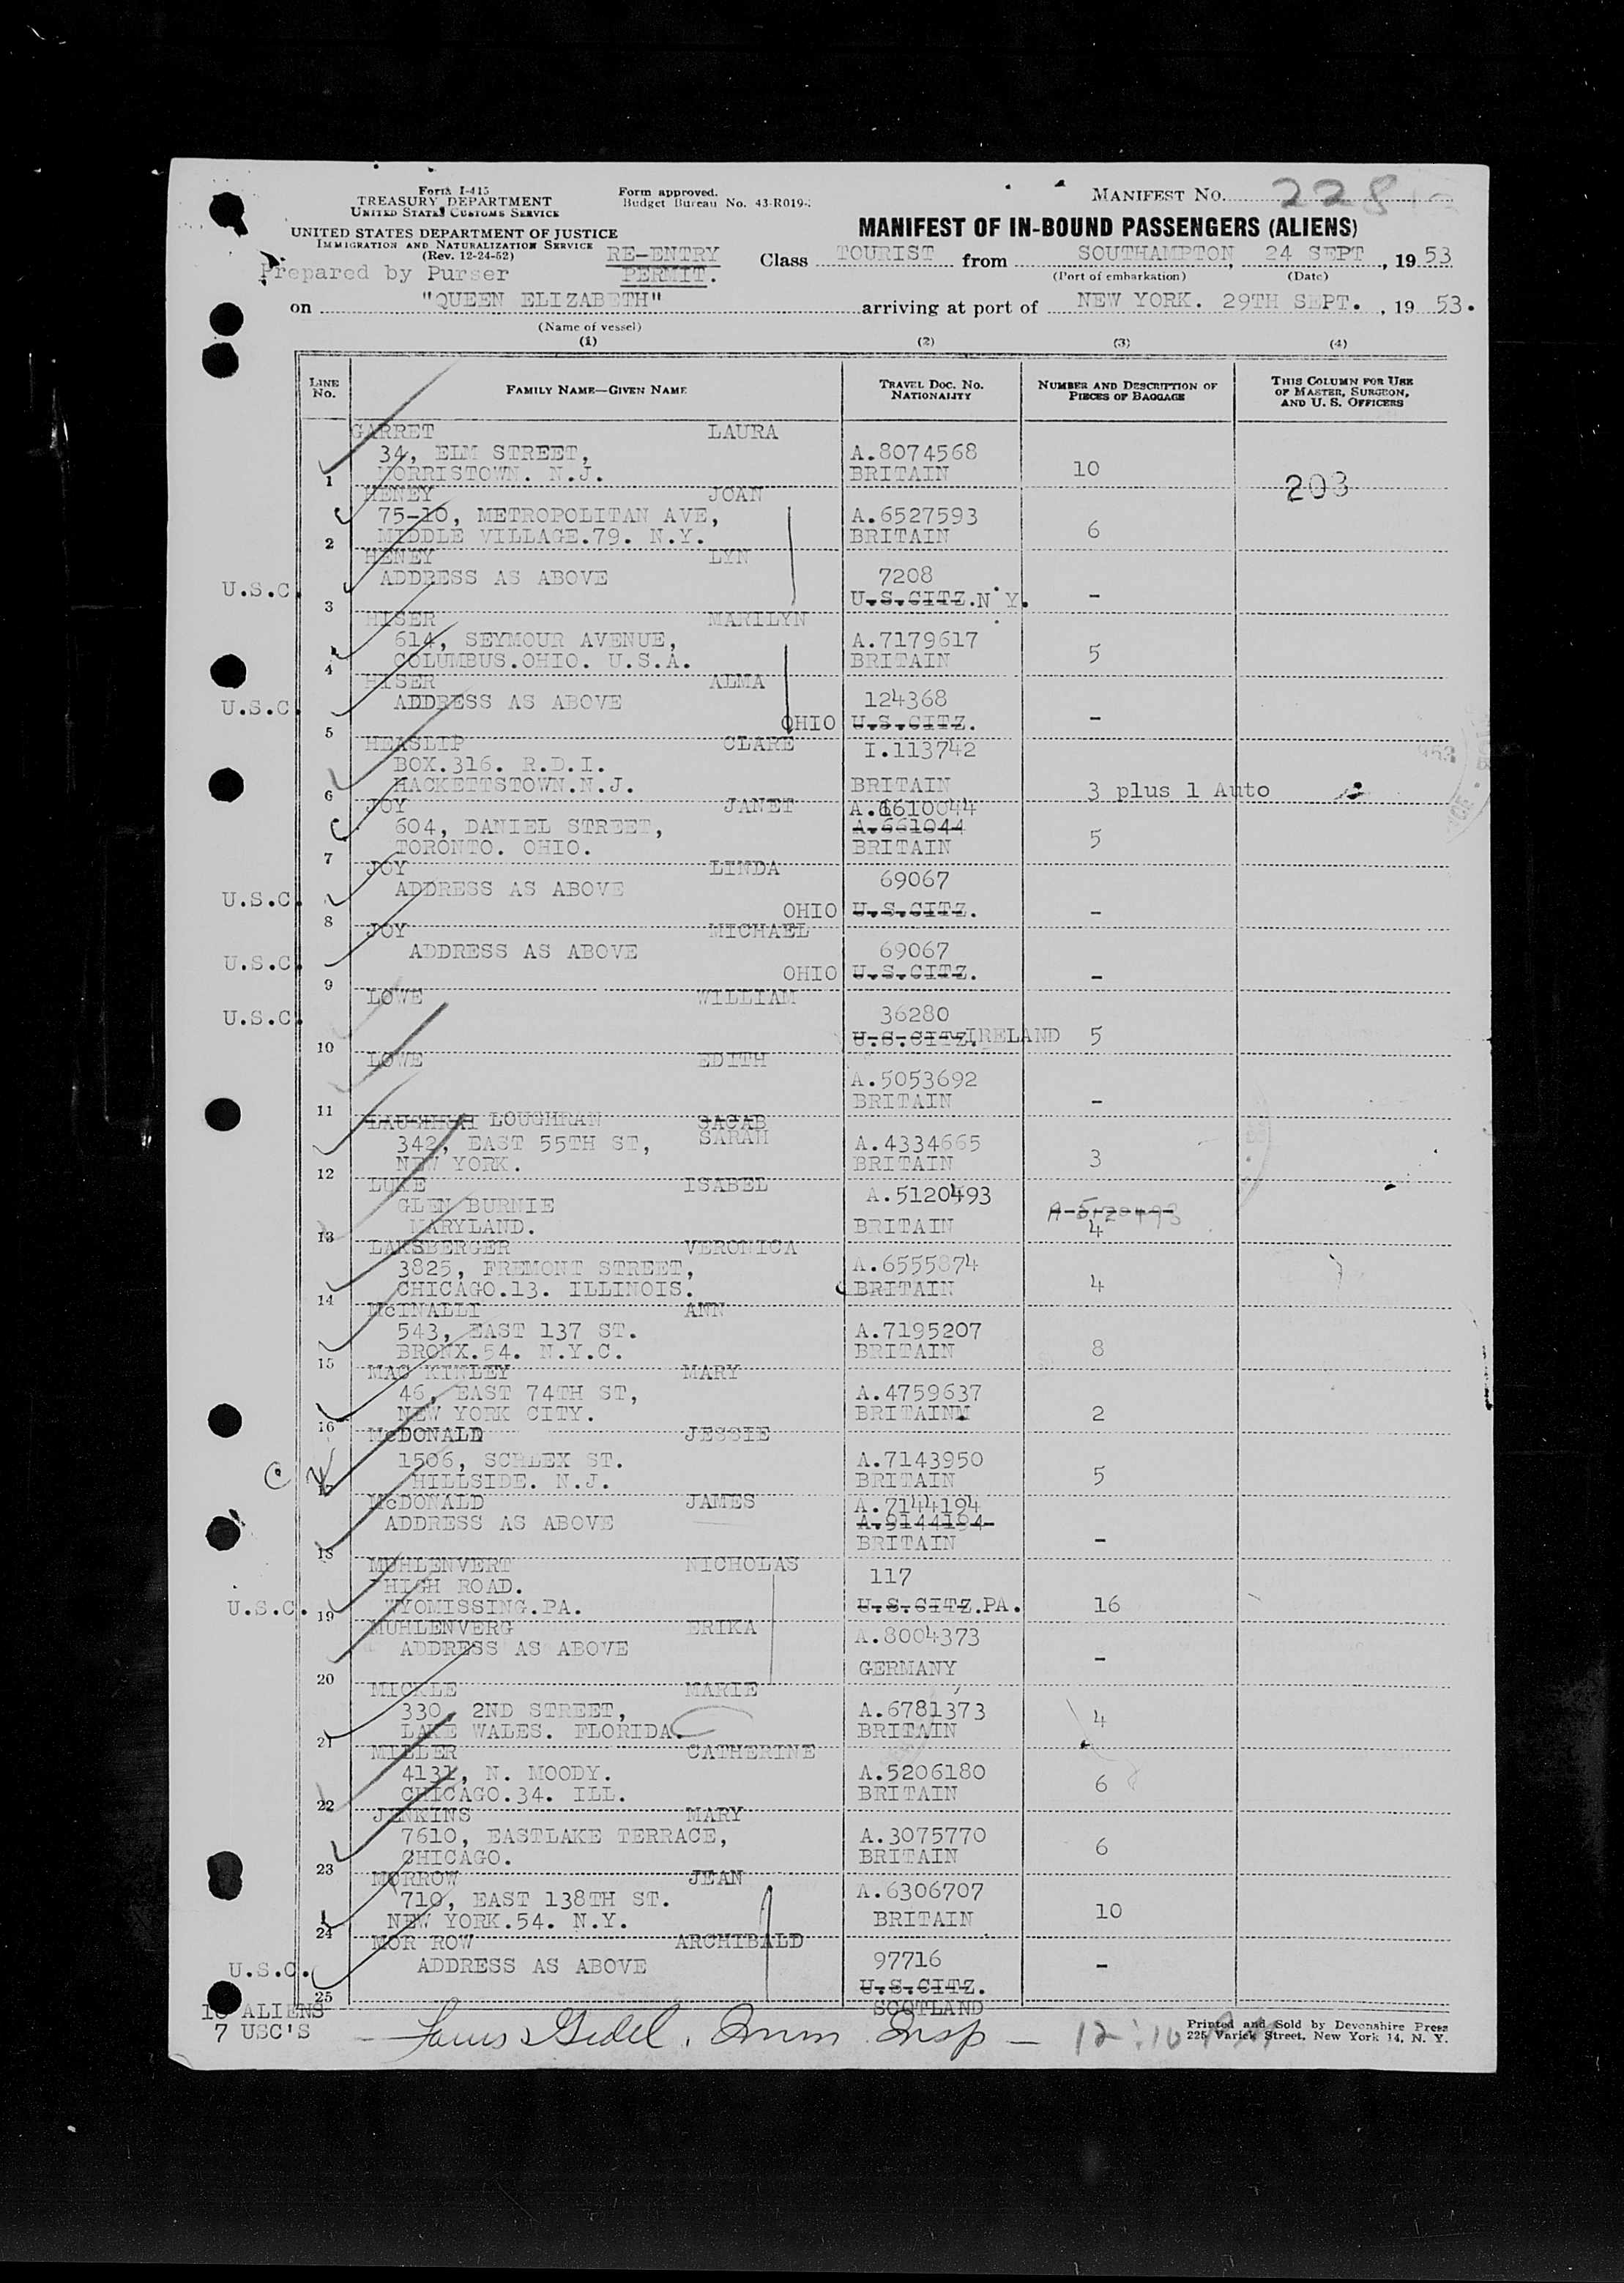 Form I-415
TREASURY DEPARTMENT
UNITED STATES CUSTOMS SERVICE
UNITED STATES DEPARTMENT OF JUSTICE
IMMIGRATION AND NATURALIZATION SERVICE
(Rev. 12-24-52)
Prepared by Purser
RE-ENTRY
PERMIT.
Form approved.
Budget Bureau No. 43-R019-
MANIFEST NO. 228
MANIFEST OF IN-BOUND PASSENGERS (ALIENS)
Class TOURIST from SOUTHAMPTON, 24 SEPT, 1953
(Port of embarkation) (Date)
on "QUEEN ELIZABETH" arriving at port of NEW YORK. 29TH SEPT., 1953.
(Name of vessel)
(1) (2) (3) (4)
LINE No. FAMILY NAME—GIVEN NAME TRAVEL DOC. NO. NATIONALITY NUMBER AND DESCRIPTION OF PIECES OF BAGGAGE THIS COLUMN FOR USE OF MASTER, SURGEON, AND U. S. OFFICERS
GARRET LAURA
34, ELM STREET, A.8074568
1 MORRISTOWN. N.J. BRITAIN 10 203
HENEY JOAN
75-10, METROPOLITAN AVE, A.6527593
2 MIDDLE VILLAGE.79. N.Y. BRITAIN 6
HENEY LYN
ADDRESS AS ABOVE 7208
U.S.C. 3 U.S.CITZ.N Y. -
HISER MARILYN
614, SEYMOUR AVENUE, A.7179617
4 COLUMBUS.OHIO. U.S.A. BRITAIN 5
HISER ALMA
U.S.C. ADDRESS AS ABOVE 124368
5 OHIO U.S.CITZ. -
HEASLIP CLARE I.113742
BOX.316. R.D.I.
6 HACKETTSTOWN.N.J. BRITAIN 3 plus 1 Auto
JOY JANET A.6610044
604, DANIEL STREET, A.661044
7 TORONTO. OHIO. BRITAIN 5
JOY LINDA 69067
U.S.C. ADDRESS AS ABOVE
8 OHIO U.S.CITZ. -
JOY MICHAEL
U.S.C. ADDRESS AS ABOVE 69067
9 OHIO U.S.CITZ. -
LOWE WILLIAM
U.S.C. 36280
10 U.S.CITZ.IRELAND 5
LOWE EDITH
A.5053692
11 BRITAIN -
LOUGHRAN SACAB
342, EAST 55TH ST, SARAH A.4334665
12 NEW YORK. BRITAIN 3
LUKE ISABEL
GLEN BURNIE A.5120493 A-5120493
13 MARYLAND. BRITAIN 4
LAKSBERGER VERONICA
3825, FREMONT STREET, A.6555874
14 CHICAGO.13. ILLINOIS. BRITAIN 4
McINALLI ANN
543, EAST 137 ST. A.7195207
15 BRONX.54. N.Y.C. BRITAIN 8
MAC KINLEY MARY
46, EAST 74TH ST, A.4759637
16 NEW YORK CITY. BRITAINM 2
McDONALD JESSIE
1506, SCHLEX ST. A.7143950
C 17 HILLSIDE. N.J. BRITAIN 5
McDONALD JAMES A.7144194
ADDRESS AS ABOVE A.9144194
18 BRITAIN -
MUHLENVERT NICHOLAS
HIGH ROAD. 117
U.S.C. 19 WYOMISSING.PA. U.S.CITZ.PA. 16
MUHLENVERG ERIKA
ADDRESS AS ABOVE A.8004373
20 GERMANY -
MICKLE MARIE
330, 2ND STREET, A.6781373
21 LAKE WALES. FLORIDA. BRITAIN 4
MILLER CATHERINE
4131, N. MOODY. A.5206180
22 CHICAGO.34. ILL. BRITAIN 6
JENKINS MARY
7610, EASTLAKE TERRACE, A.3075770
23 CHICAGO. BRITAIN 6
MORROW JEAN
710, EAST 138TH ST. A.6306707
24 NEW YORK.54. N.Y. BRITAIN 10
MOR ROW ARCHIBALD
U.S.C. ADDRESS AS ABOVE 97716 -
25 U.S.CITZ.
SCOTLAND
18 ALIENS
7 USC'S
Imm Insp - 12:10
Printed and Sold by Devonshire Press
225 Varick Street, New York 14, N. Y.